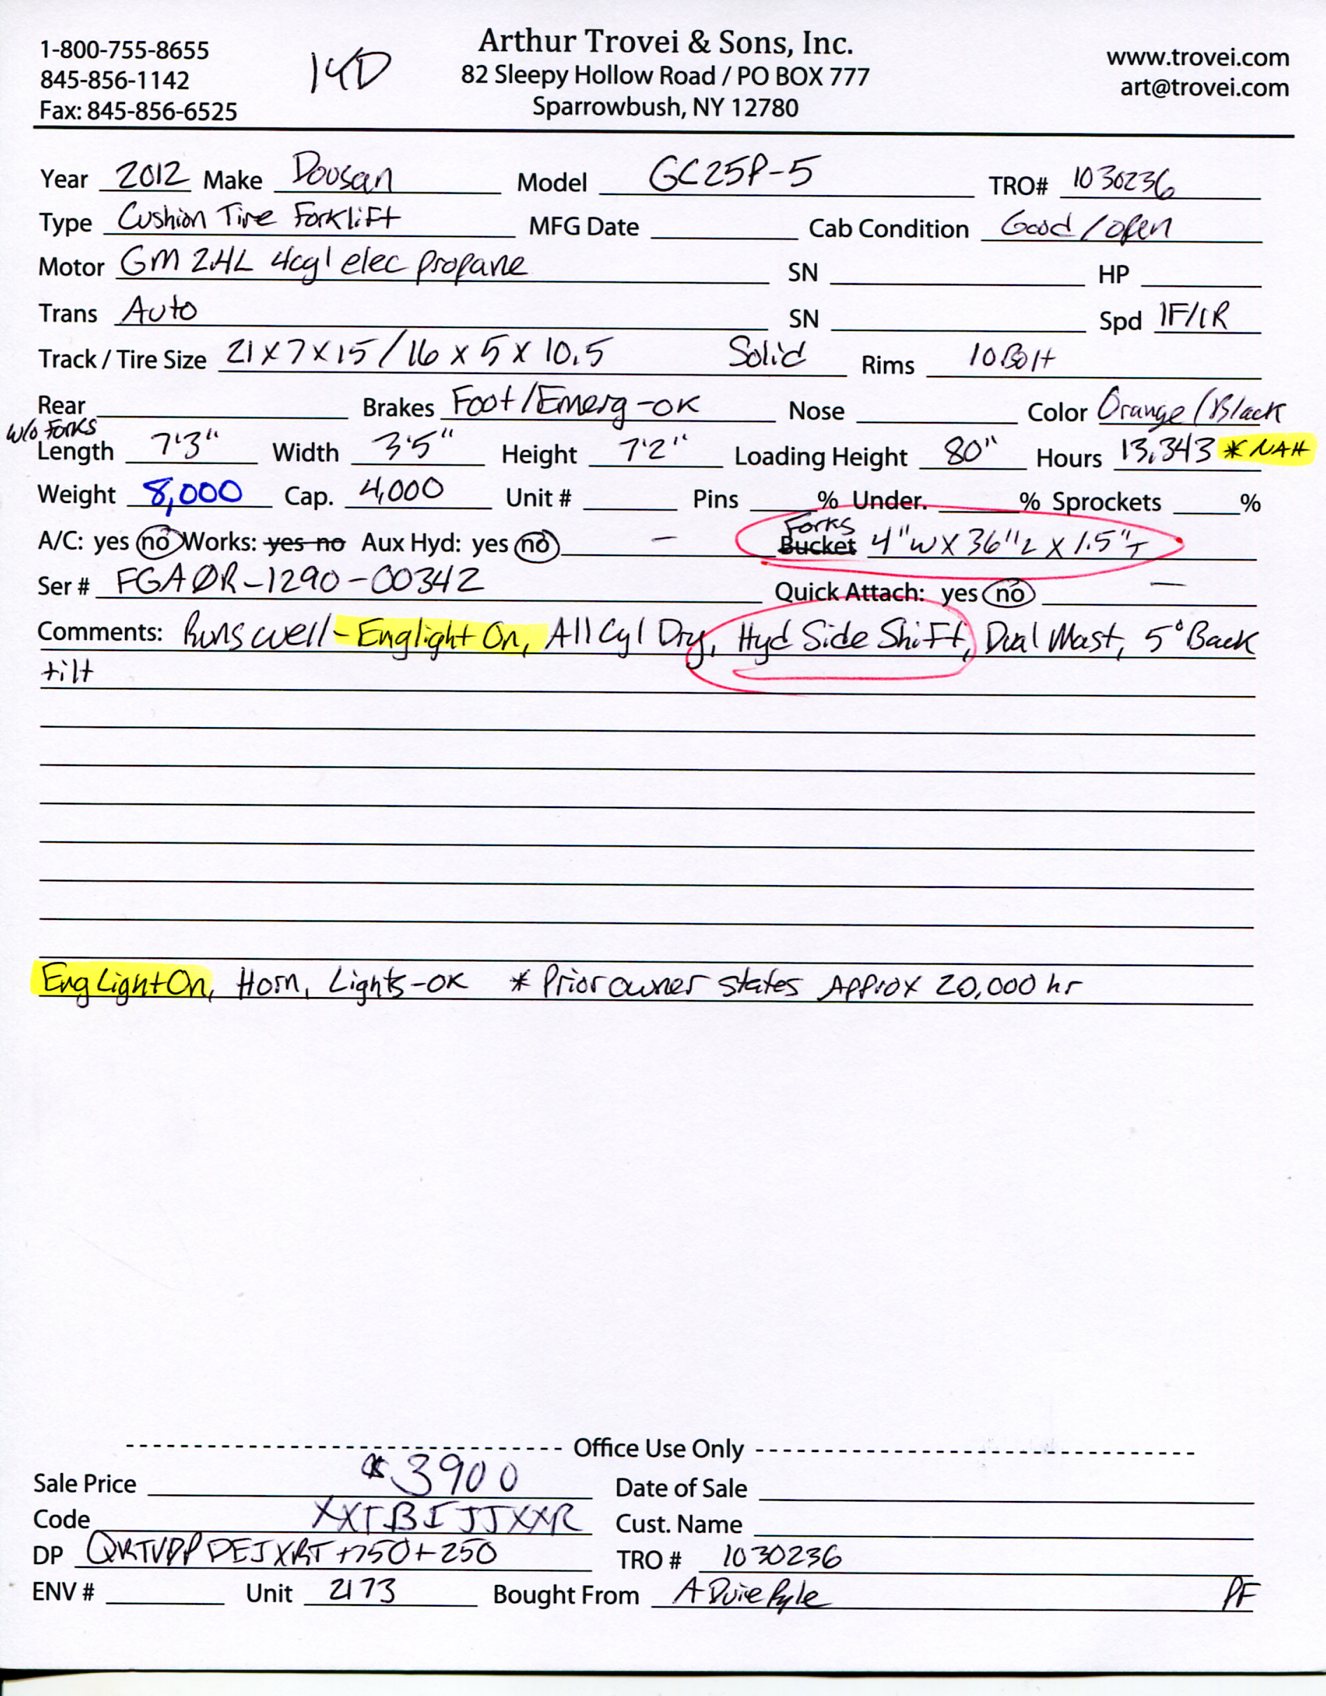 1-800-755-8655
845-856-1142
Fax: 845-856-6525
14D
Arthur Trovei & Sons, Inc.
82 Sleepy Hollow Road / PO BOX 777
Sparrowbush, NY 12780
www.trovei.com
art@trovei.com
Year 2012 Make Doosan Model GC25P-5 TRO# 1030236
Type Cushion Tire Forklift MFG Date Cab Condition Good / open
Motor GM 2.4L 4cyl elec propane SN HP
Trans Auto SN Spd 1F/1R
Track / Tire Size 21 x 7 x 15 / 16 x 5 x 10.5 Solid Rims 10 Bolt
Rear Brakes Foot / Emerg - OK Nose Color Orange / Black
w/o Forks
Length 7'3" Width 3'5" Height 7'2" Loading Height 80" Hours 13,343 * NAH
Weight 8,000 Cap. 4,000 Unit # Pins % Under. % Sprockets %
A/C: yes no Works: yes no Aux Hyd: yes no — Forks Bucket 4"W x 36"L x 1.5"T
Ser # FGA0R-1290-00342 Quick Attach: yes no —
Comments: Runs well - Eng light On, All Cyl Dry, Hyd Side Shift, Dual Mast, 5° Back
tilt
Eng Light On, Horn, Lights - OK * Prior owner states Approx 20,000 hr
Office Use Only
Sale Price 3900 Date of Sale
Code XXTBIJJXXR Cust. Name
DP QRTVPP DEJXRT +750+250 TRO # 1030236
ENV # Unit 2173 Bought From A Duie Pyle PF